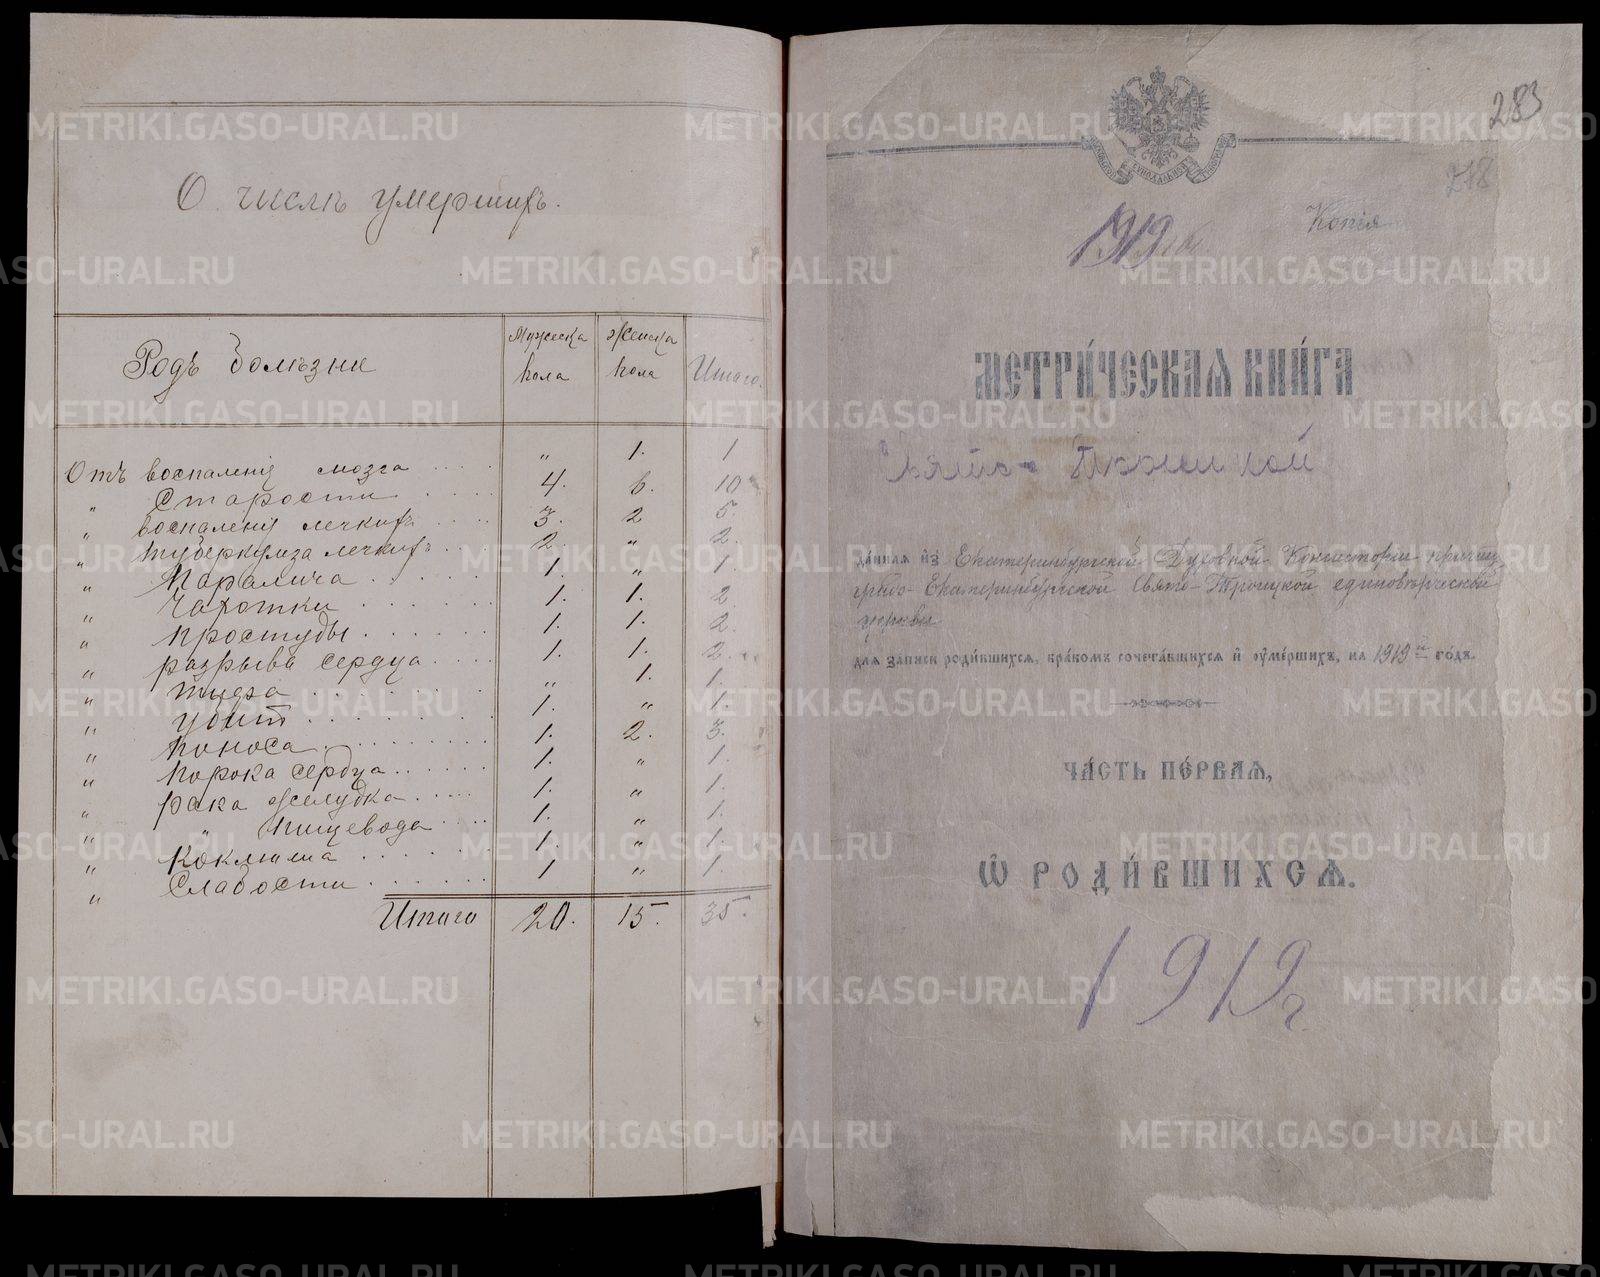 О числѣ умершихъ.
Родъ болѣзни
Мужеска пола
Женска пола
Итого.
Отъ воспаленія мозга .... „ 1. 1
„ Старости .... 4. 6. 10
„ воспаленія легкихъ .... 3. 2 5.
„ туберкулеза легкихъ ... 2. „ 2.
„ Паралича ...... 1. „ 1.
„ Чахотки ...... 1. 1. 2
„ простуды ...... 1. 1. 2.
„ разрыва сердца .... 1. 1. 2.
„ тифза ...... „ 1. 1.
„ убит ...... 1. „ 1.
„ поноса ...... 1. 2. 3.
„ порока сердца ...... 1. „ 1.
„ рака желудка ..... 1. „ 1.
„ „ пищевода .... 1. „ 1.
„ Коклюша ...... 1. „ 1.
„ Слабости ...... 1 „ 1.
Итого 20. 15. 35.
283
218
МОСКОВСКОЙ СѴНОДАЛЬНОЙ ТИПОГРАФІИ
Копія
1919
МЕТРИ́ЧЕСКАЯ КНИ́ГА
Свято-Троицкой
да́нная и҆з̾ Екатеринбургской Духовной Консисторіи причту
градо-Екатеринбургской Свято-Троицкой единовѣрческой
церкви
для за́писи роди́вшихся, бра́комъ сочета́вшихся и҆ ᲂу҆ме́ршихъ, на 1919й го́дъ.
ЧА́СТЬ ПЕ́РВАЯ,
Ѡ҆ РОДИ́ВШИХСЯ.
1919г
METRIKI.GASO-URAL.RU